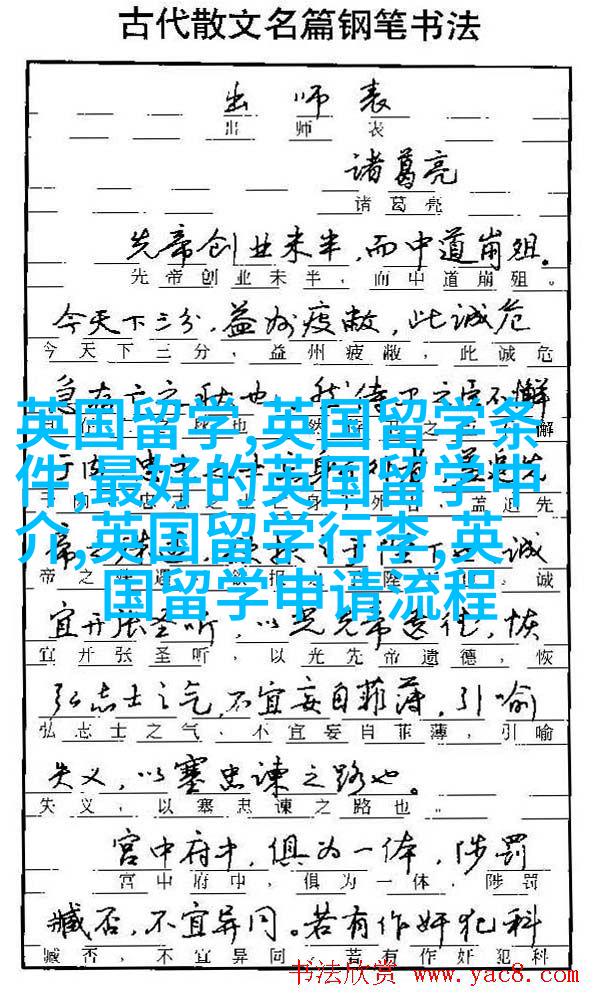 古代散文名篇钢笔书法
出师表
出师表
诸葛亮
诸葛亮
先帝创业未半,而中道崩殂。
先帝创业未半,而中道崩殂。
今天下三分,益州疲敝,此诚危
今天下三分,益州疲敝,此诚危
急存亡之秋也 然侍卫之臣不懈
懈
英国留学,英国留学条
件,最好的英国留学中
介,英国留学行李,英
国留学申请流程
先
盖追先
诚
帝之 诚
宜开张圣听,以光先帝遗德,恢
宜开张圣听,以光先帝遗德,恢
弘志士之气,不宜妄自菲薄,引喻
弘志士之气,不宜妄自菲薄,引喻
失义,以塞忠谏之路也。
失义,以塞忠谏之路也。
宫中府中,俱为一体,陟罚
宫中府中,俱为一体,陟罚
臧否,不宜异同。若有作奸犯科
臧否,不宜异同。若有作奸犯科
书法欣赏 www.yac8.com